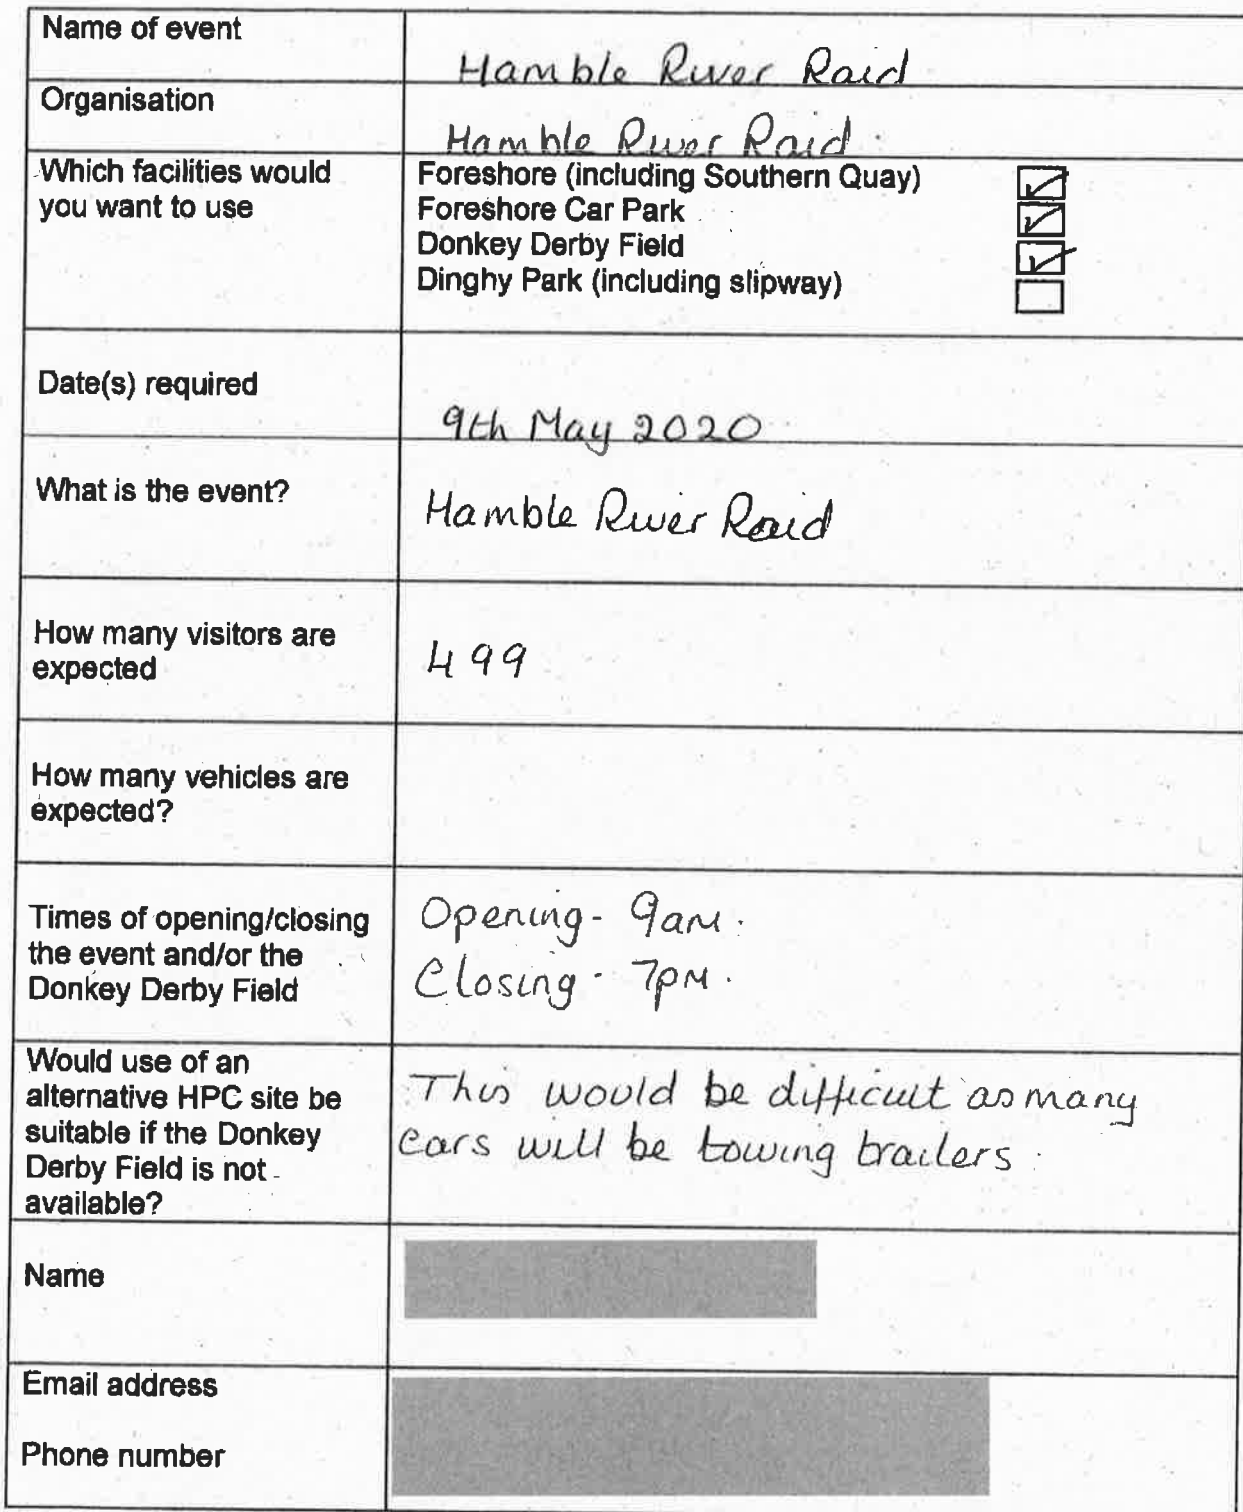 Name of event
Hamble River Raid
Organisation
Hamble River Raid.
Which facilities would
you want to use
Foreshore (including Southern Quay)
Foreshore Car Park
Donkey Derby Field
Dinghy Park (including slipway)
Date(s) required
9th May 2020
What is the event?
Hamble River Raid
How many visitors are
expected
499
How many vehicles are
expected?
Times of opening/closing
the event and/or the
Donkey Derby Field
Opening - 9am.
Closing - 7pm.
Would use of an
alternative HPC site be
suitable if the Donkey
Derby Field is not
available?
This would be difficult as many
cars will be towing trailers.
Name
Email address
Phone number